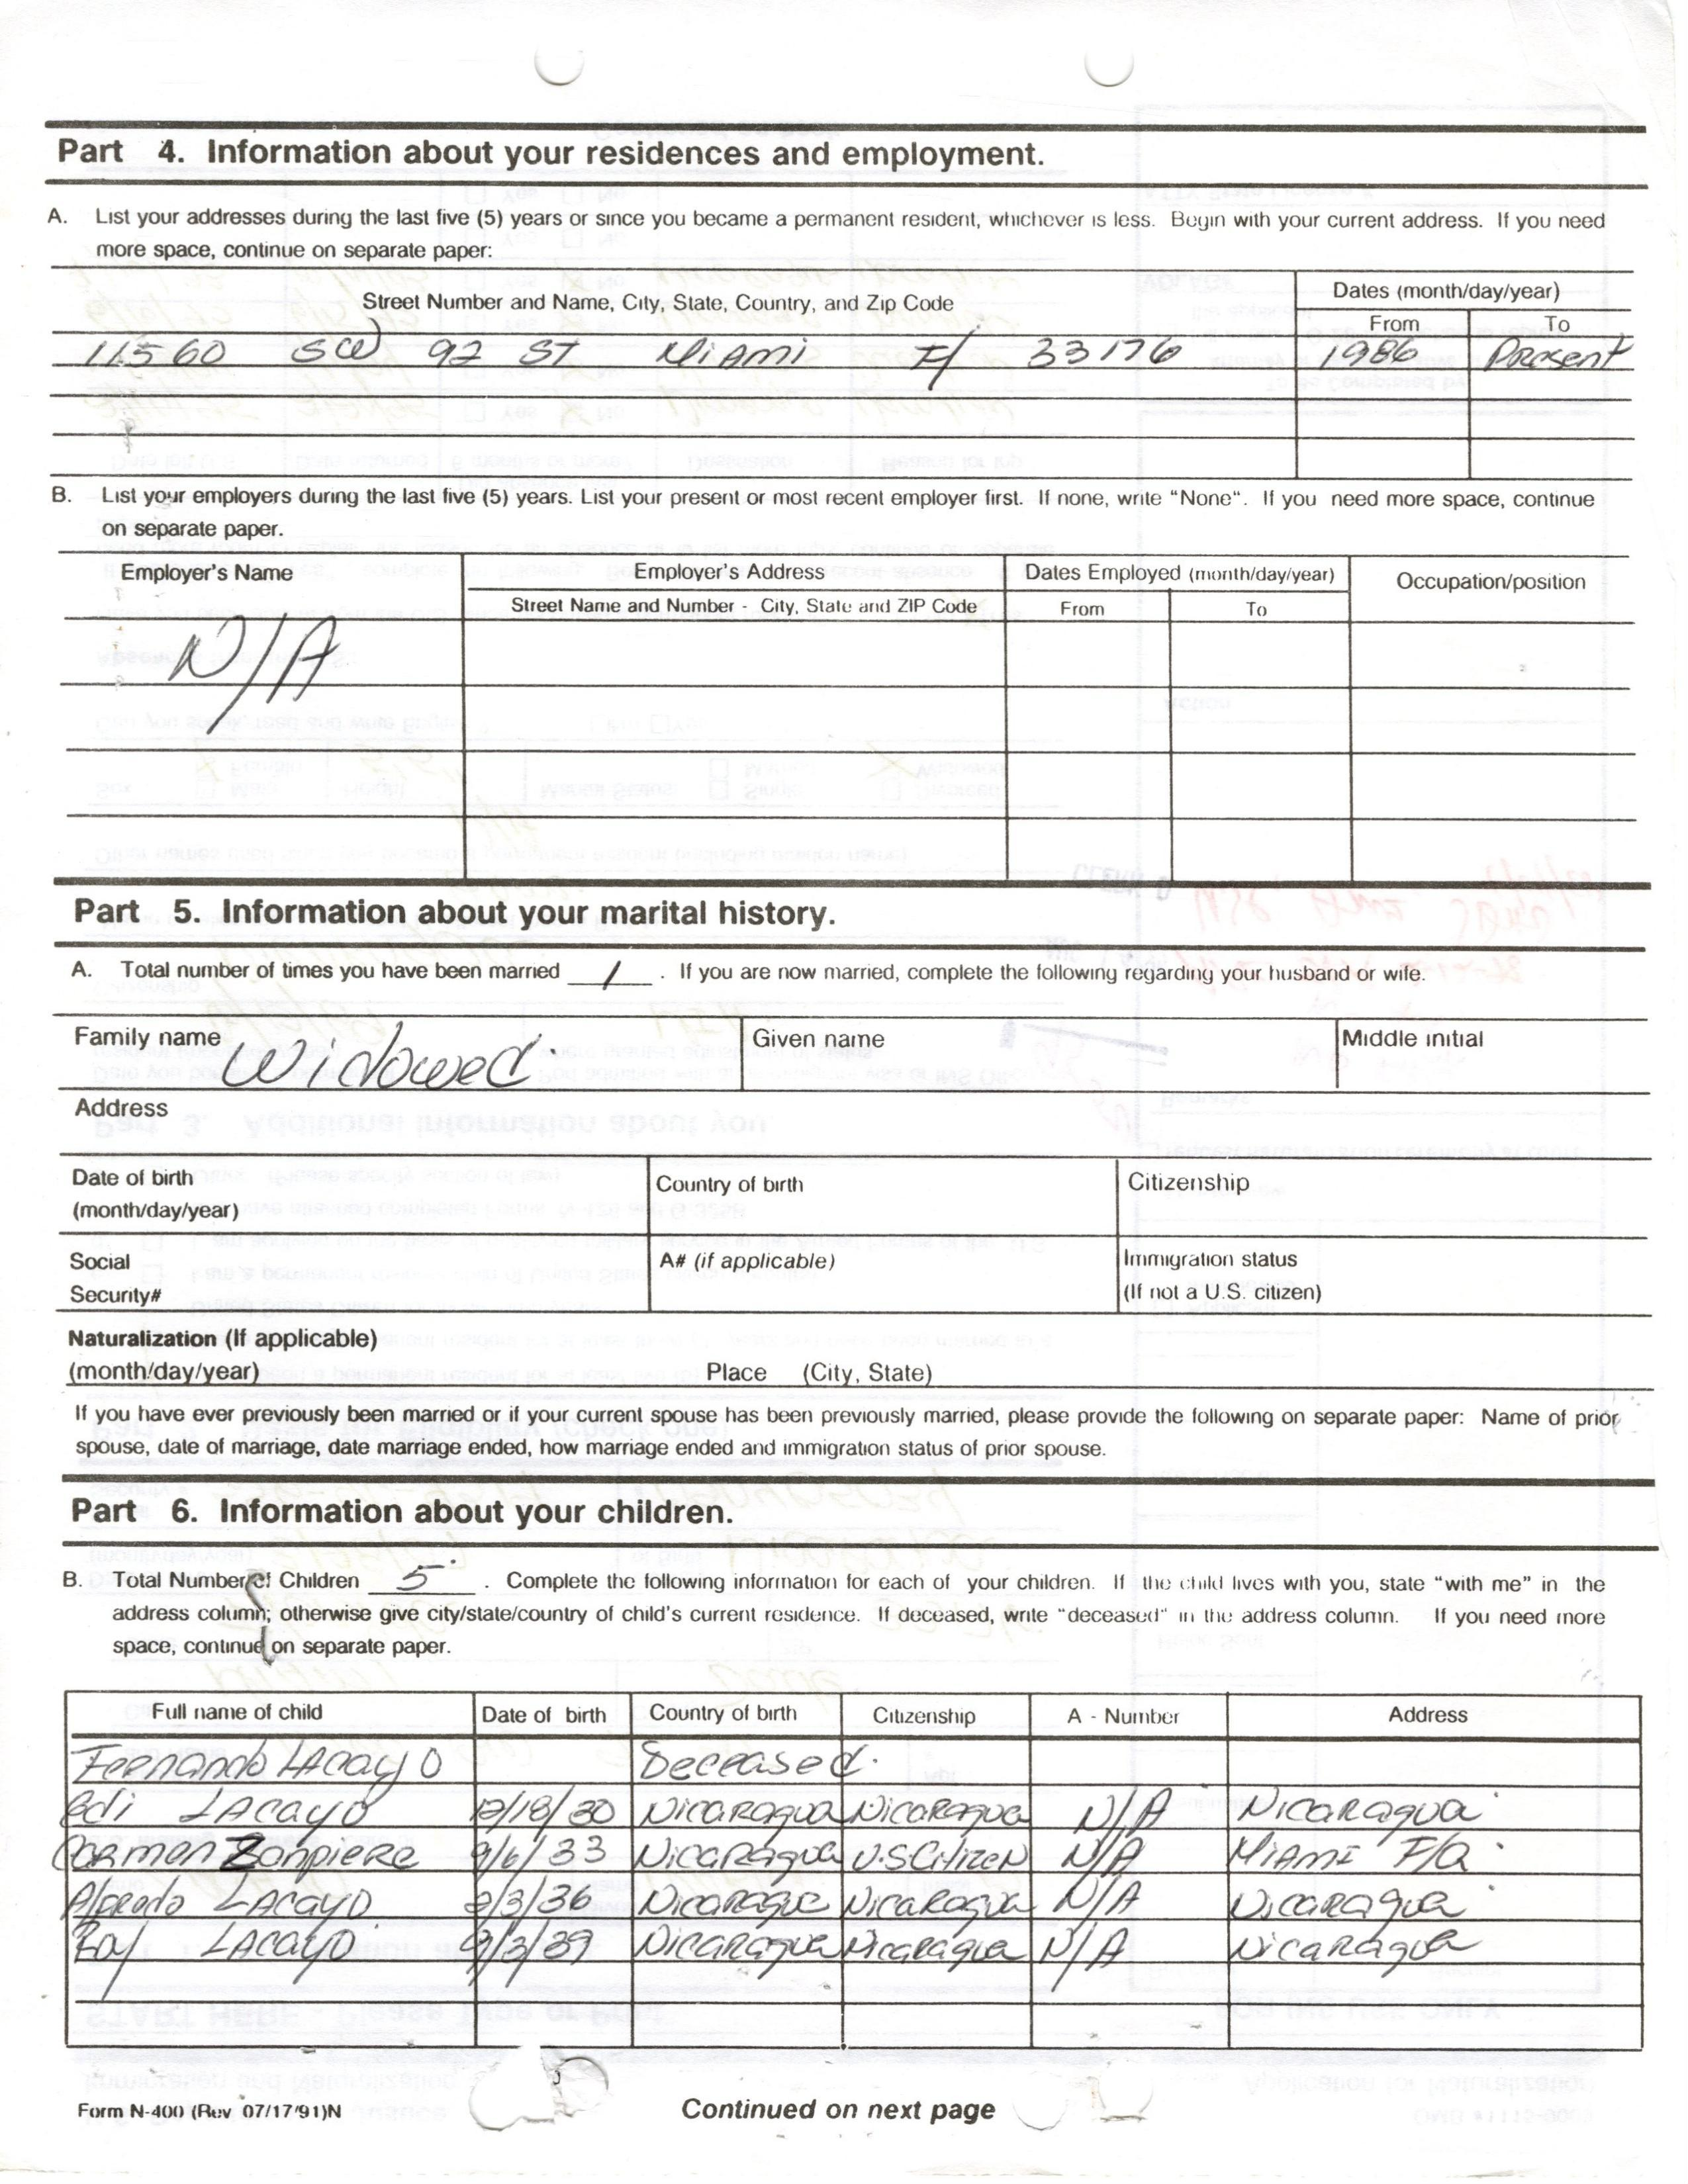 Part 4. Information about your residences and employment.
A. List your addresses during the last five (5) years or since you became a permanent resident, whichever is less. Begin with your current address. If you need
more space, continue on separate paper:
Street Number and Name, City, State, Country, and Zip Code Dates (month/day/year)
From To
11560 SW 92 ST Miami Fl 33176 1986 Present
B. List your employers during the last five (5) years. List your present or most recent employer first. If none, write "None". If you need more space, continue
on separate paper.
Employer's Name Employer's Address Dates Employed (month/day/year) Occupation/position
Street Name and Number - City, State and ZIP Code From To
N/A
Part 5. Information about your marital history.
A. Total number of times you have been married 1 . If you are now married, complete the following regarding your husband or wife.
Family name Widowed. Given name Middle initial
Address
Date of birth Country of birth Citizenship
(month/day/year)
Social A# (if applicable) Immigration status
Security# (If not a U.S. citizen)
Naturalization (If applicable)
(month/day/year) Place (City, State)
If you have ever previously been married or if your current spouse has been previously married, please provide the following on separate paper: Name of prior
spouse, date of marriage, date marriage ended, how marriage ended and immigration status of prior spouse.
Part 6. Information about your children.
B. Total Number of Children 5 . Complete the following information for each of your children. If the child lives with you, state "with me" in the
address column; otherwise give city/state/country of child's current residence. If deceased, write "deceased" in the address column. If you need more
space, continue on separate paper.
Full name of child Date of birth Country of birth Citizenship A - Number Address
Fernando Lacayo Deceased.
Edi Lacayo 12/18/30 Nicaragua Nicaragua N/A Nicaragua
Carmen Zanpiere 9/6/33 Nicaragua U.S Citizen N/A Miami Fla.
Alfredo Lacayo 2/3/36 Nicaragua Nicaragua N/A Nicaragua
Roy Lacayo 9/3/39 Nicaragua Nicaragua N/A Nicaragua
Form N-400 (Rev 07/17/91)N Continued on next page